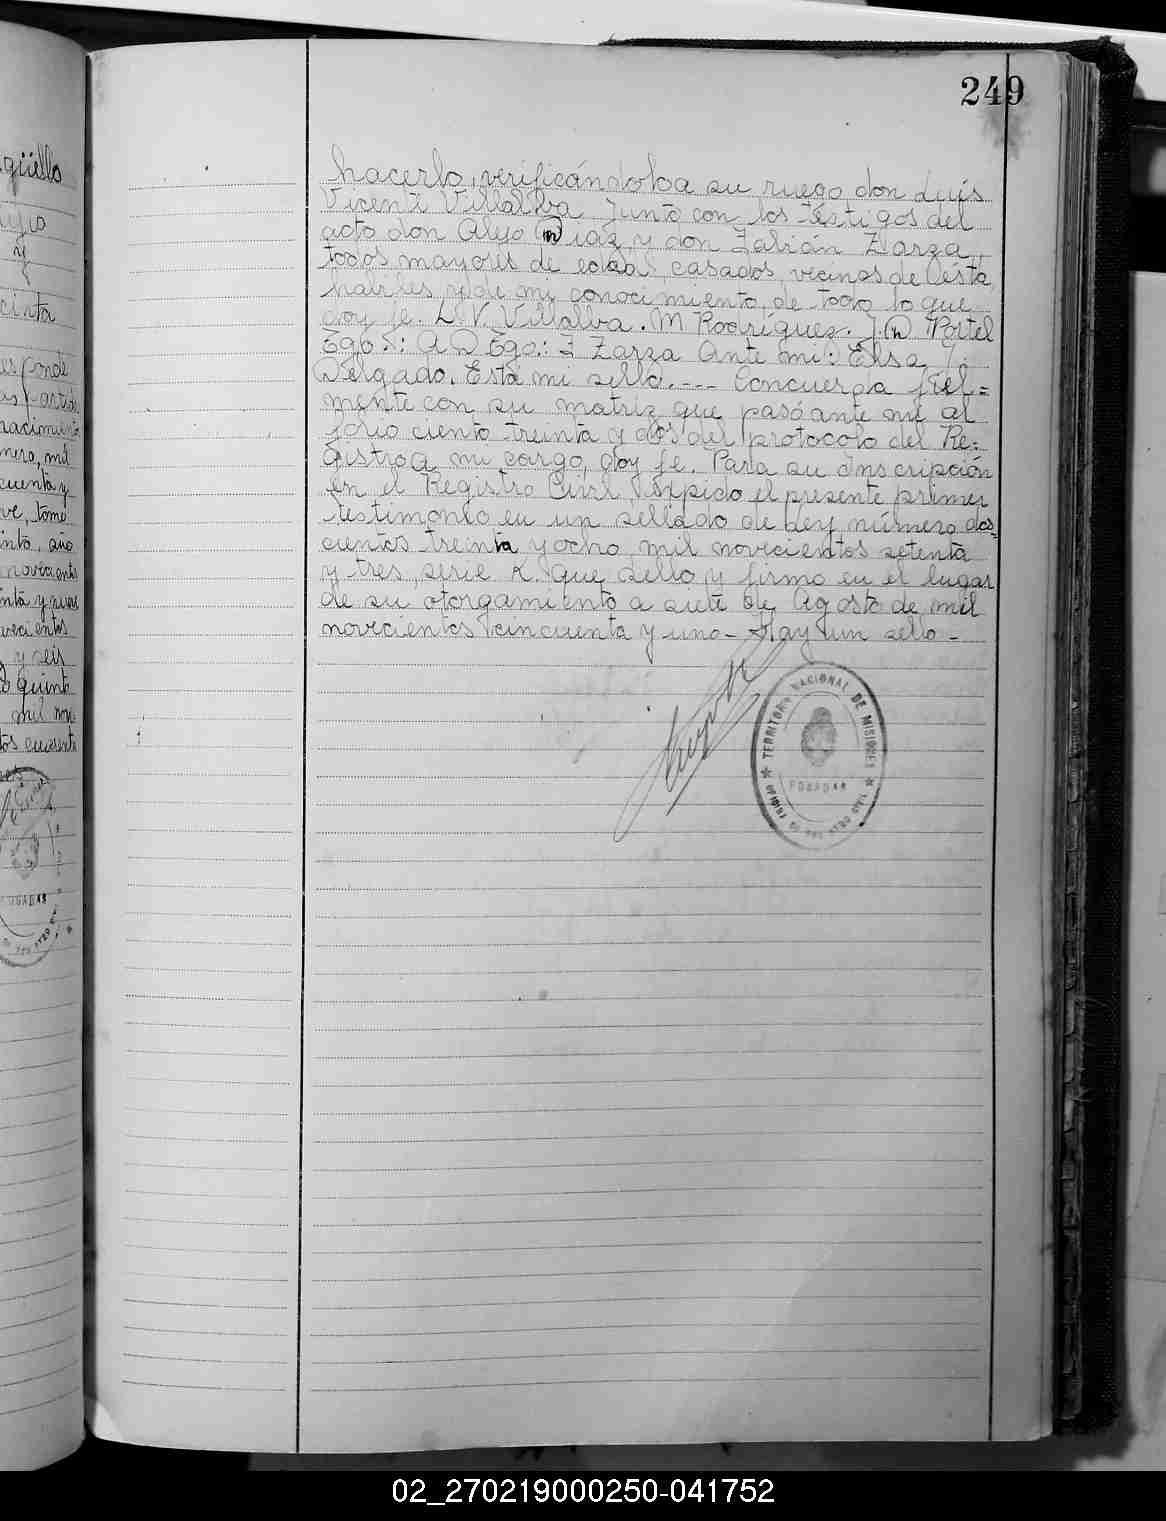 249
hacerlo, verificándoloa su ruego don Luis
Vicente Villalba junto con los testigos del
acto don Alejo Diaz y don Zarza,
todos mayores de edad, casados, vecinos de ésta,
habiles y de mi conocimiento, de todo lo que
doy fe. L. V. Villalba. M Rodríguez. J. Portel
Tgo.: A D Tgo.: Zarza Ante mi: Elsa
Delgado. Está mi sello. --- Concuerda fiel=
mente con su matriz que pasó ante mi al
folio ciento treinta y dos del protocolo del Re=
gistro a mi cargo, doy fe. Para su inscripción
en el Registro Civil, expido el presente primer
testimonio en un sellado de Ley número dos=
cientos treinta y ocho mil novecientos setenta
y tres, serie K. que sello y firmo en el lugar
de su otorgamiento a siete de Agosto de mil
novecientos cincuenta y uno - Hay un sello -
TERRITORIO NACIONAL DE MISIONES
POSADAS
güello
y
cinta
nacimiento
mil
cuenta y
tomo
año
y seis
quinto
mil
POSADAS
02_270219000250-041752